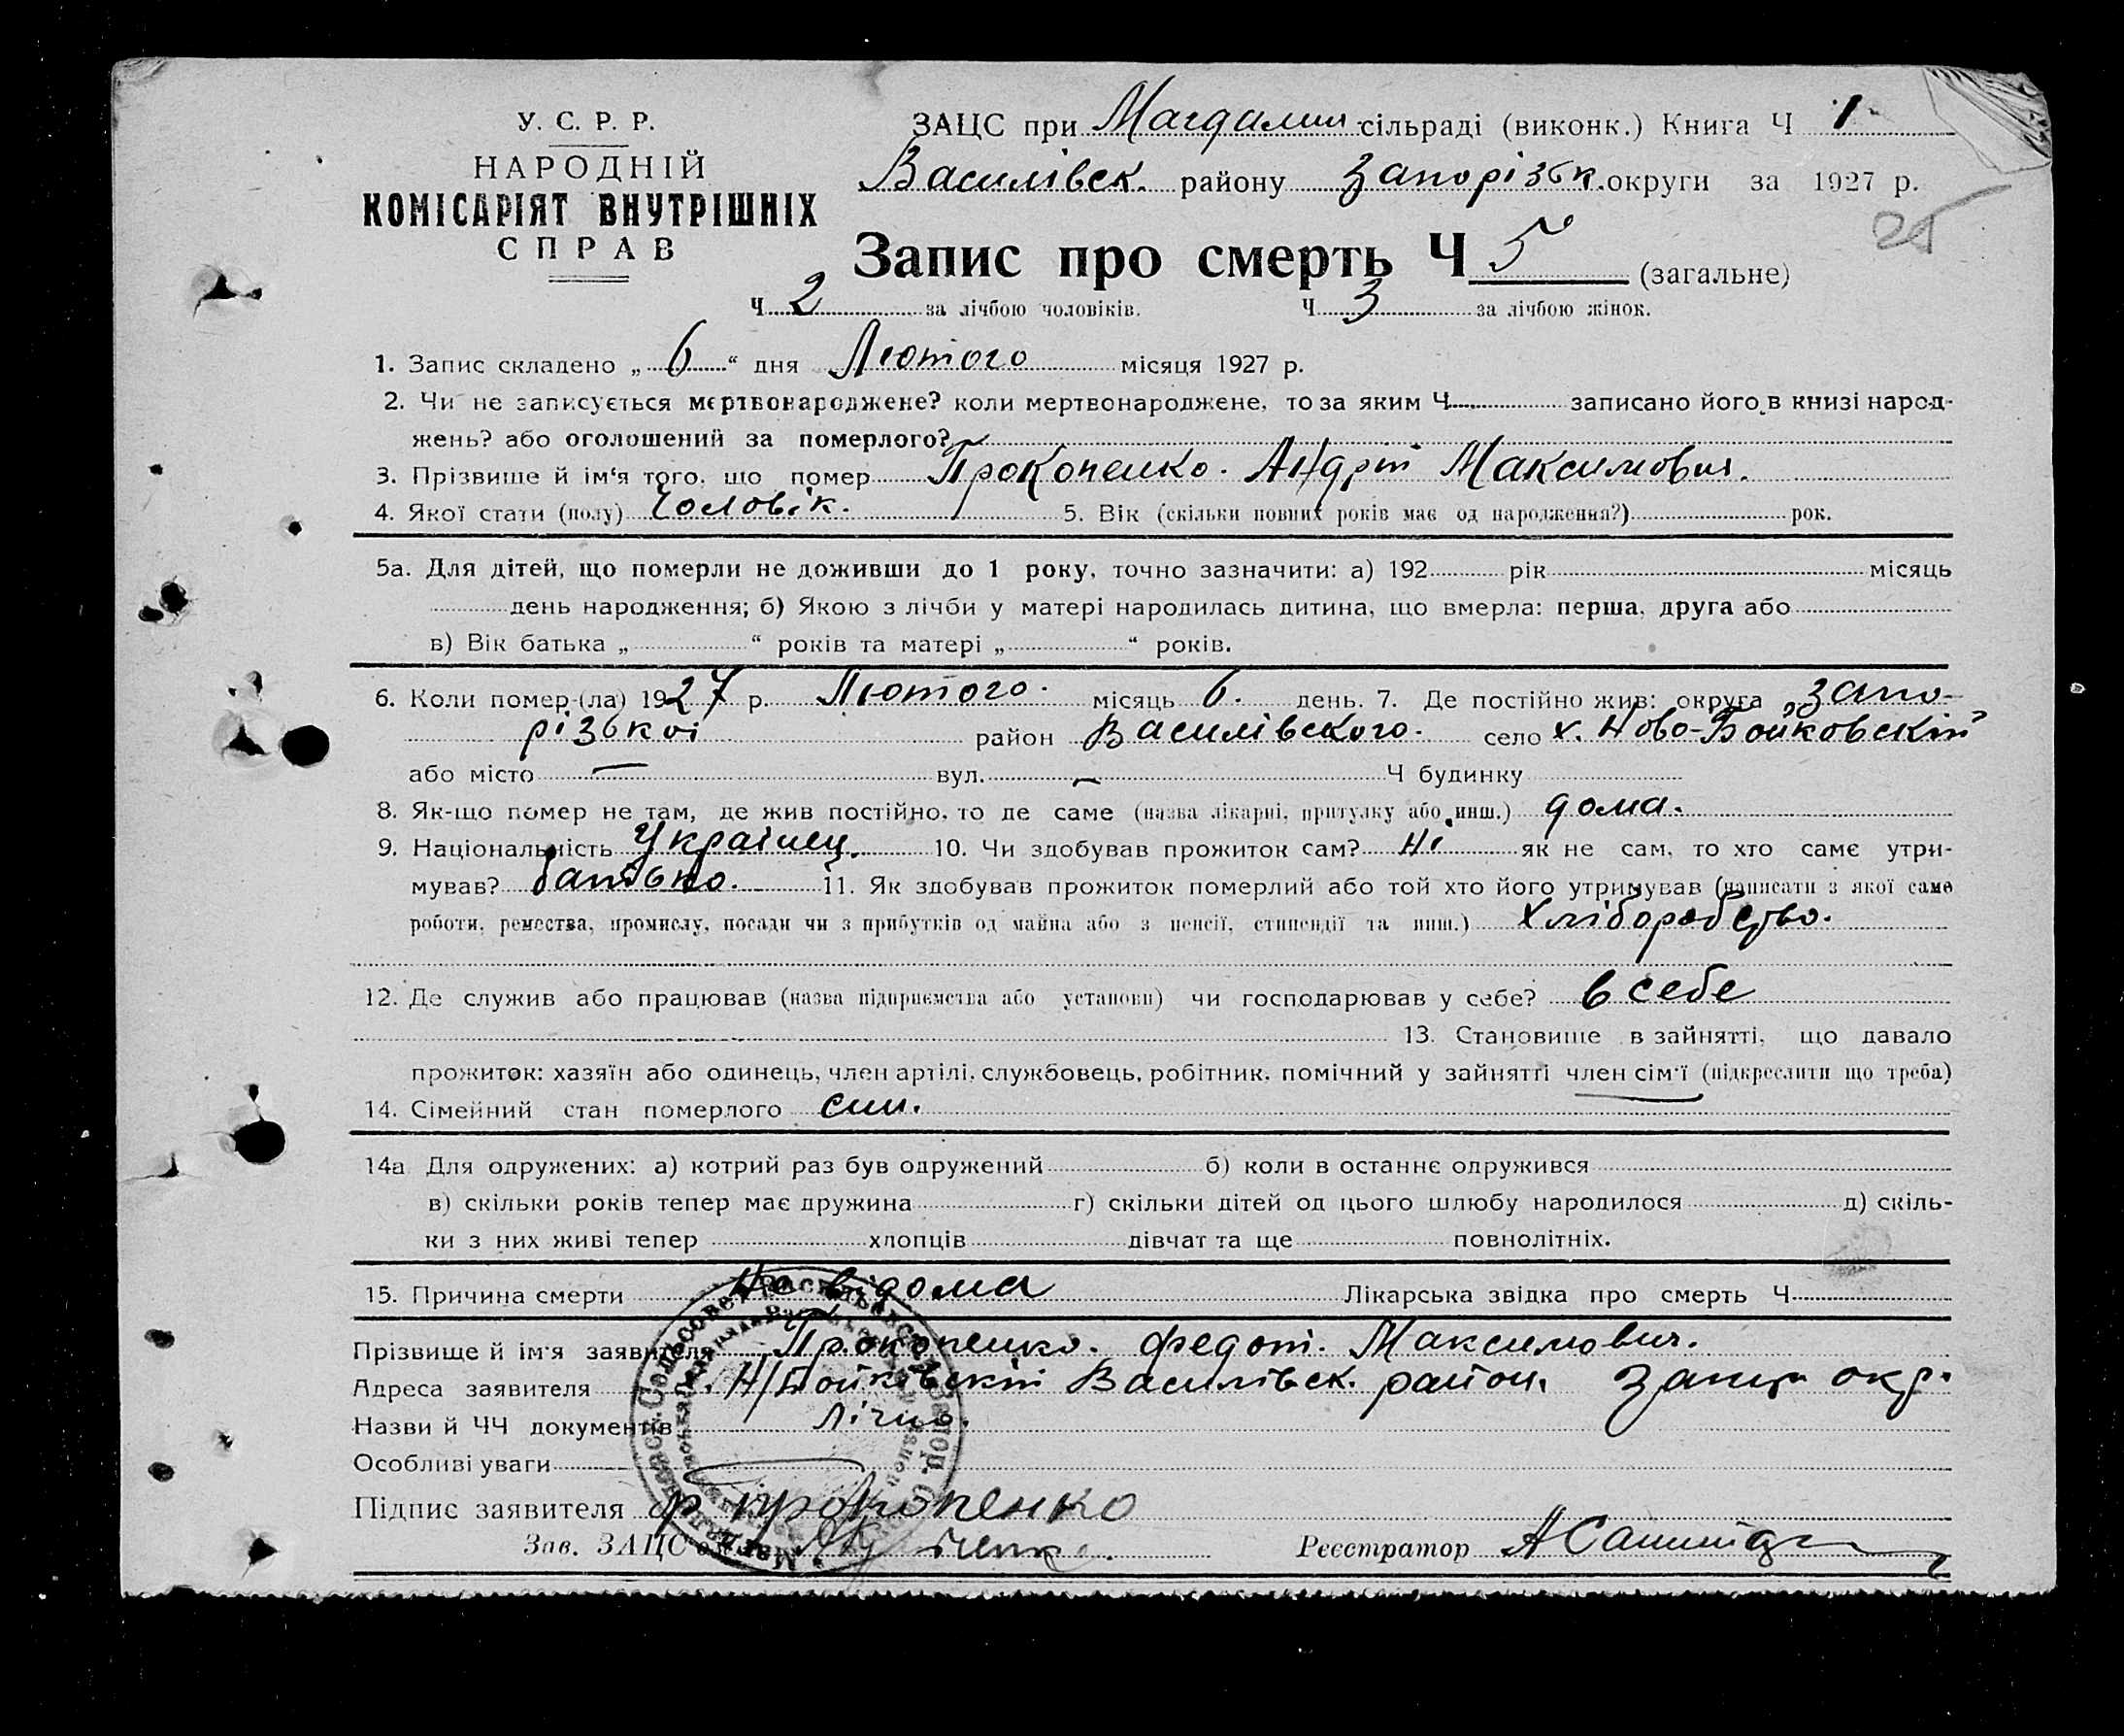 У. С. Р. Р.
НАРОДНІЙ
КОМІСАРІЯТ ВНУТРІШНІХ
СПРАВ
ЗАЦС при Магдалин сільраді (виконк.) Книга Ч 1
Василівск. району Запорізьк. округи за 1927 р.
25
Запис про смерть Ч 5 (загальне)
Ч 2 за лічбою чоловіків. Ч 3 за лічбою жінок.
1. Запис складено „ 6 “ дня Лютого місяця 1927 р.
2. Чи не записується мертвонароджене? коли мертвонароджене, то за яким Ч записано його в книзі народ-
жень? або оголошений за померлого?
3. Прізвище й ім‘я того, що помер Прокопенко. Андрій Максимович.
4. Якої стати (полу) Чоловік. 5. Вік (скільки повних років має од народження?) рок.
5а. Для дітей, що померли не доживши до 1 року, точно зазначити: а) 192 рік місяць
день народження; б) Якою з лічби у матері народилась дитина, що вмерла: перша, друга або
в) Вік батька „ “ років та матері „ “ років.
6. Коли помер (ла) 1927 р. Лютого. місяць 6. день. 7. Де постійно жив: округа Запо-
різької район Василівского. село х. Ново-Бойковскій
або місто — вул. — Ч будинку
8. Як-що помер не там, де жив постійно, то де саме (назва лікарні, притулку або инш.) дома.
9. Національність Українец. 10. Чи здобував прожиток сам? Ні як не сам, то хто саме утри-
мував? батько. 11. Як здобував прожиток померлий або той хто його утримував (написати з якої саме
роботи, ремества, промислу, посади чи з прибутків од майна або з пенсії, стипендії та инш.) Хліборобство.
12. Де служив або працював (назва підприємства або установи) чи господарював у себе? в себе
13. Становище в зайнятті, що давало
прожиток: хазяїн або одинець, член артілі, службовець, робітник, помічний у зайнятті член сім‘ї (підкреслити що треба)
14. Сімейний стан померлого син.
14а Для одружених: а) котрий раз був одружений б) коли в останнє одружився
в) скільки років тепер має дружина г) скільки дітей од цього шлюбу народилося д) скіль-
ки з них живі тепер хлопців дівчат та ще повнолітніх.
15. Причина смерти Не відома Лікарська звідка про смерть Ч
Прізвище й ім'я заявителя Прокопенко. Федот. Максимович.
Адреса заявителя Н/Бойківскій Василівск. район. окр.
Назви й ЧЧ документів Лічно.
Особливі уваги
Підпис заявителя Ф Прокопенко
Зав. ЗАЦС'ом Реєстратор